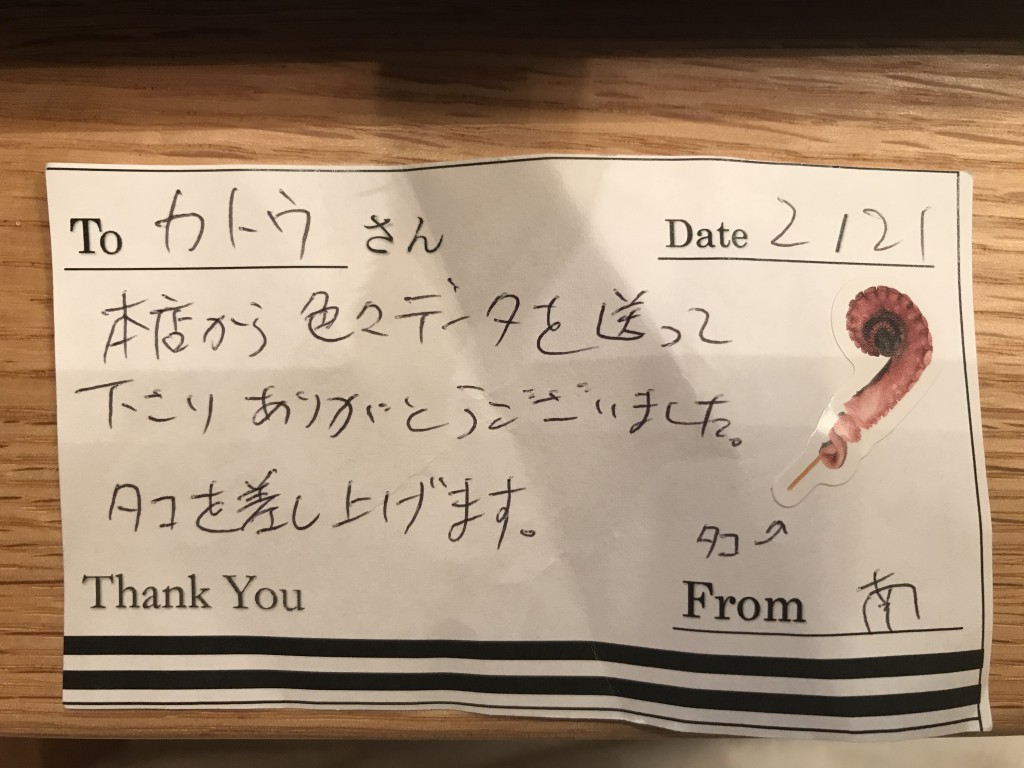 To カトウ さん
Date 2/21
本店から色々データを送って
下さりありがとうございました。
タコを差し上げます。
タコ↗
Thank You
From 南